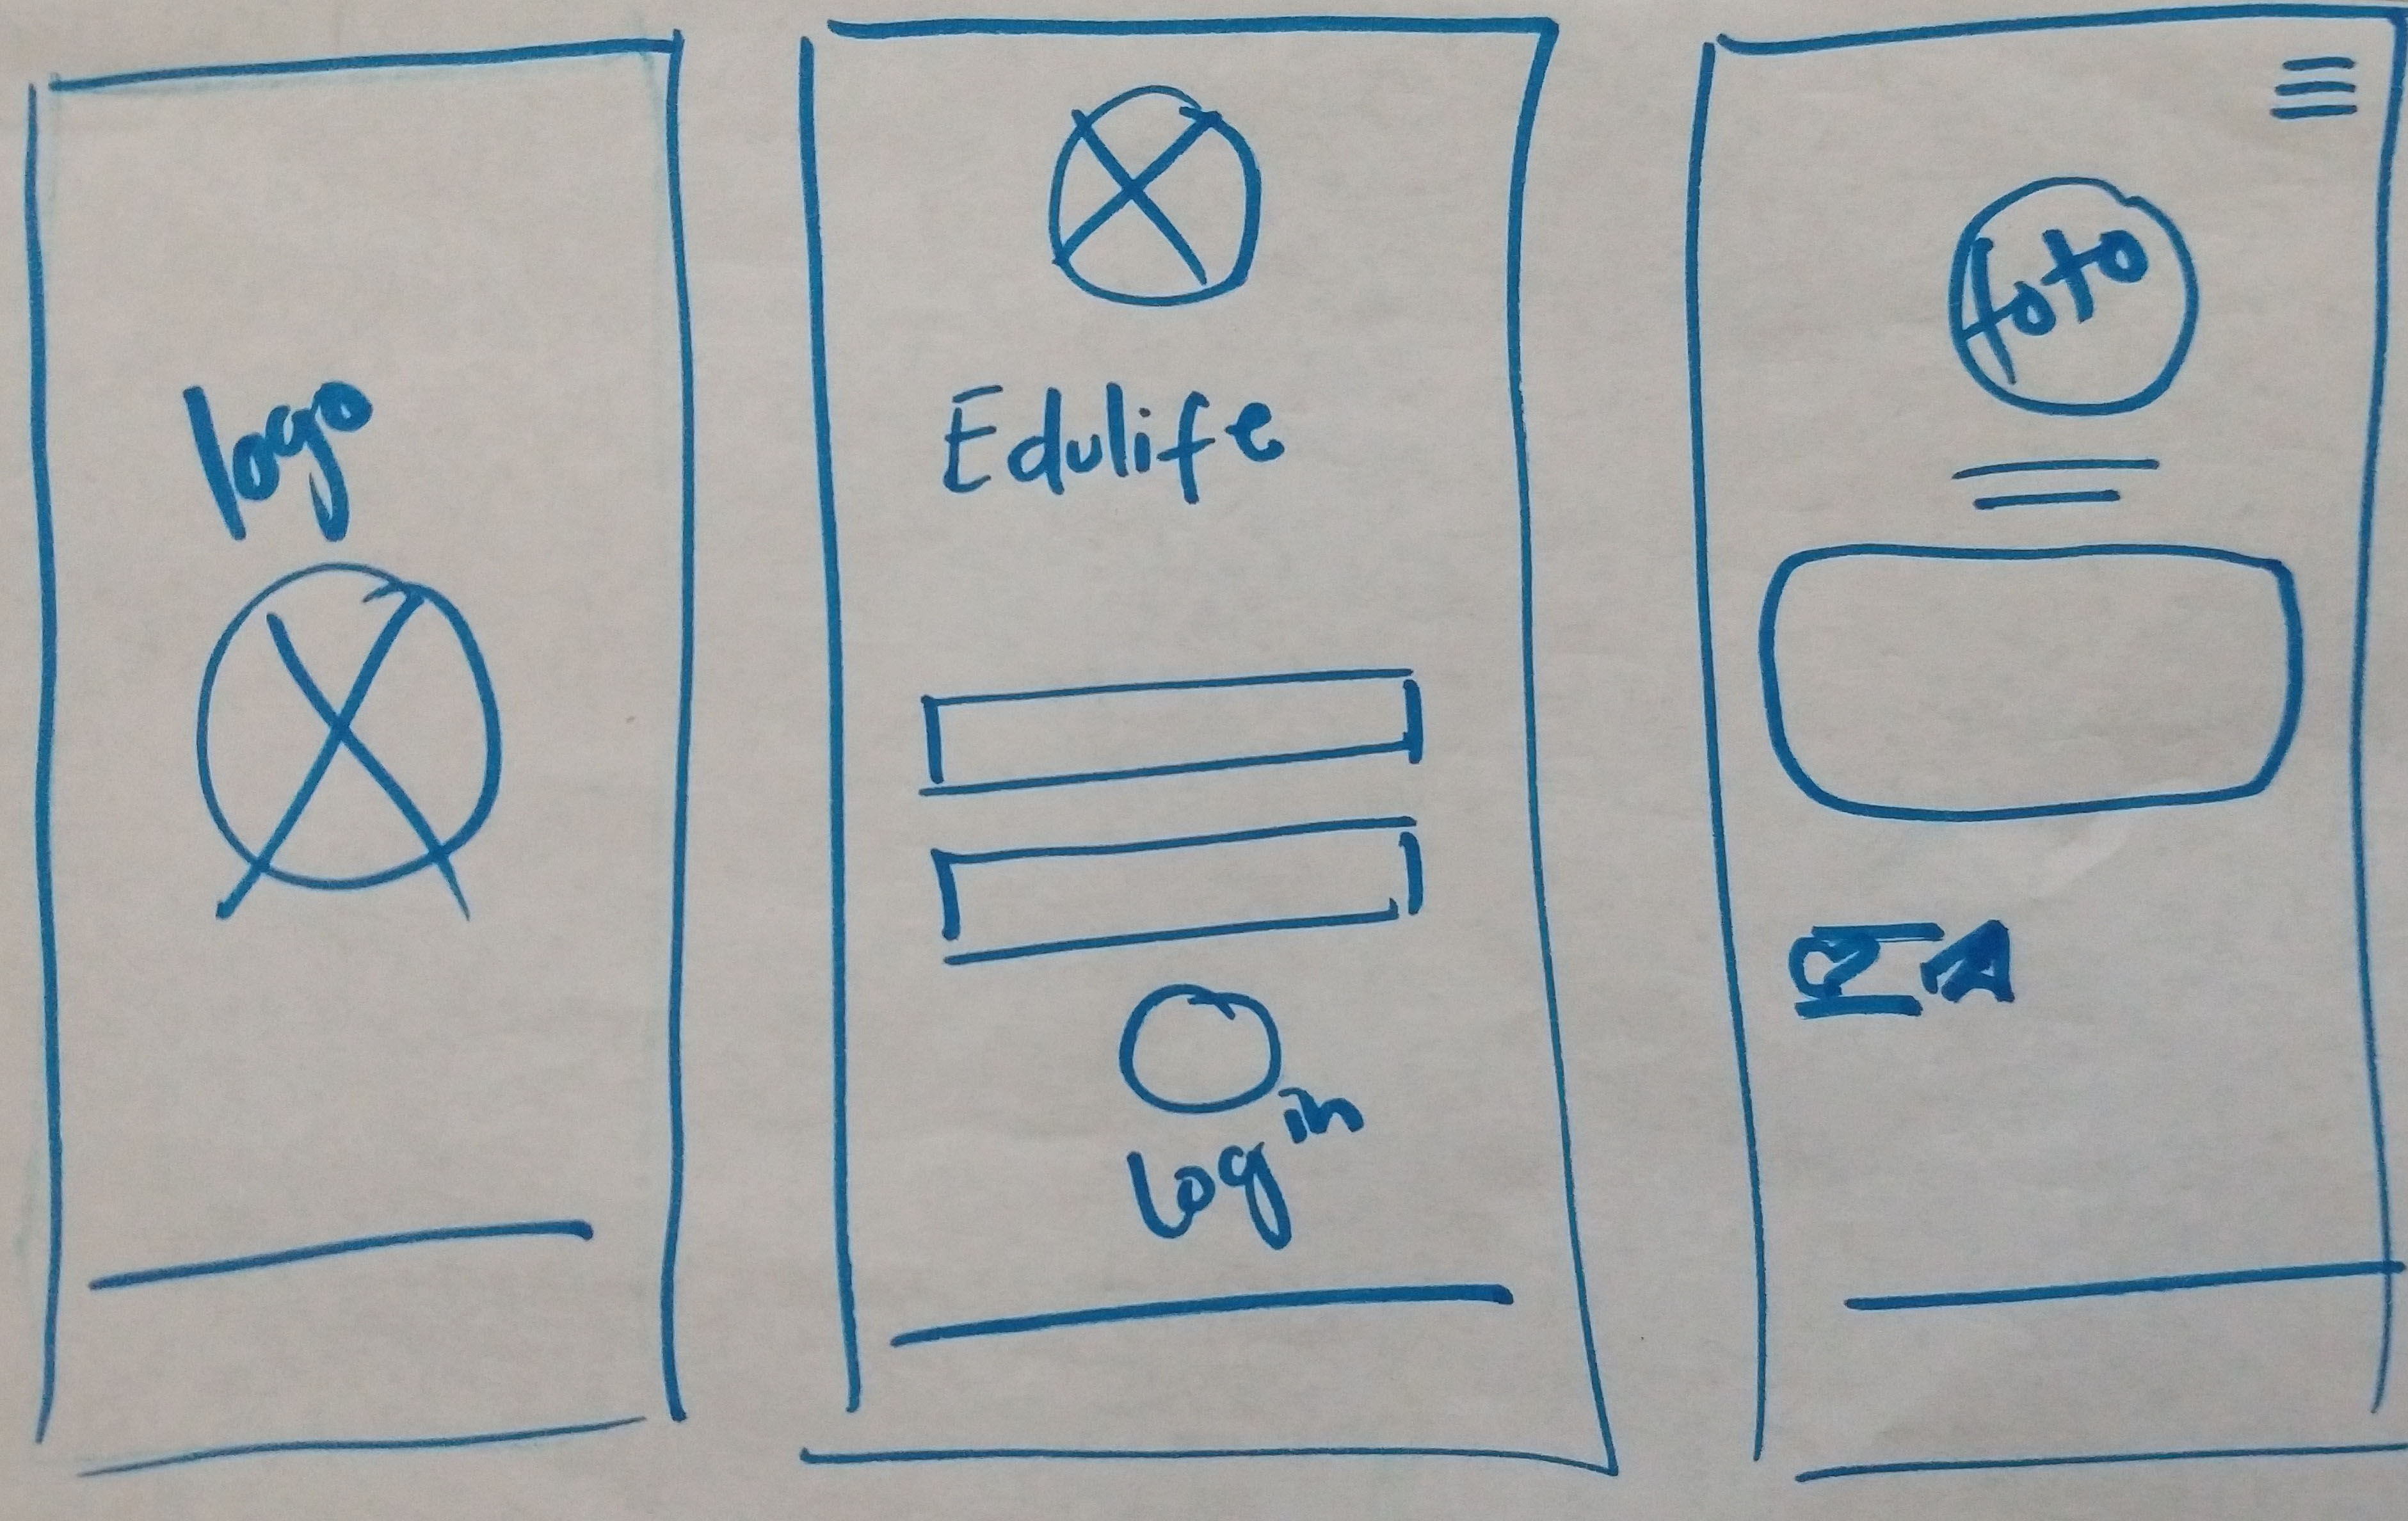 logo
Edulife
log in
foto